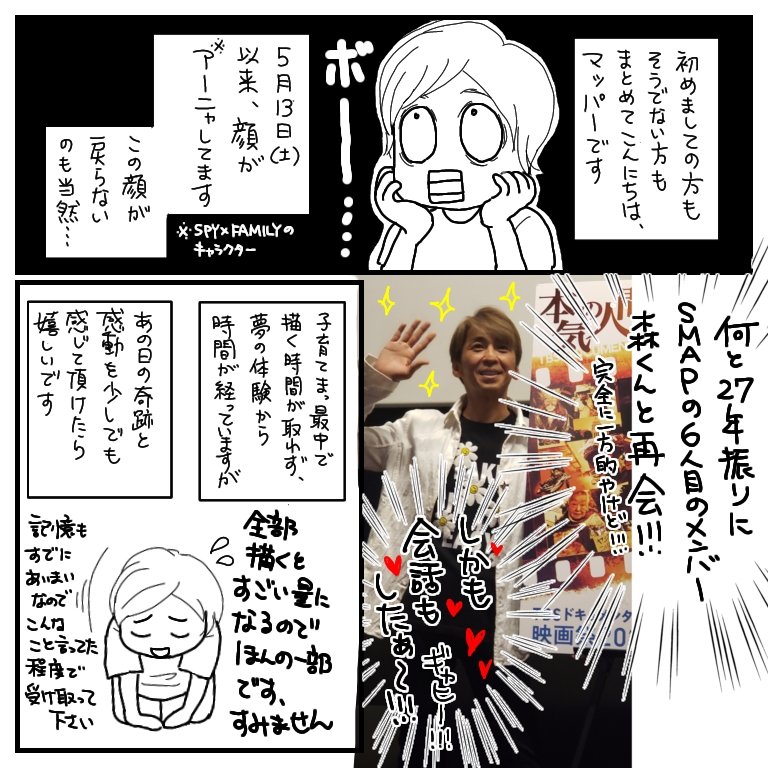 初めましての方も
そうでない方も
まとめてこんにちは、
マッパーです
ボー……
5月13日(土)
以来、顔が
※アーニャしてます
この顔が
戻らない
のも当然…
※SPY×FAMILYの
キャラクター
何と27年振りに
SMAPの6人目のメンバー
森くんと再会!!!
完全に一方的やけど!!!
しかも
会話も
したぁ〜!!!
ギャヒー!!!
本気の人
TBSドキュメンタ
映画祭20
子育てまっ最中で
描く時間が取れず、
夢の体験から
時間が経っていますが
あの日の奇跡と
感動を少しでも
感じて頂けたら
嬉しいです
全部
描くと
すごい量に
なるので
ほんの一部
です、
すみません
記憶も
すでに
あいまい
なので
こんな
こと言ってた
程度で
受け取って
下さい